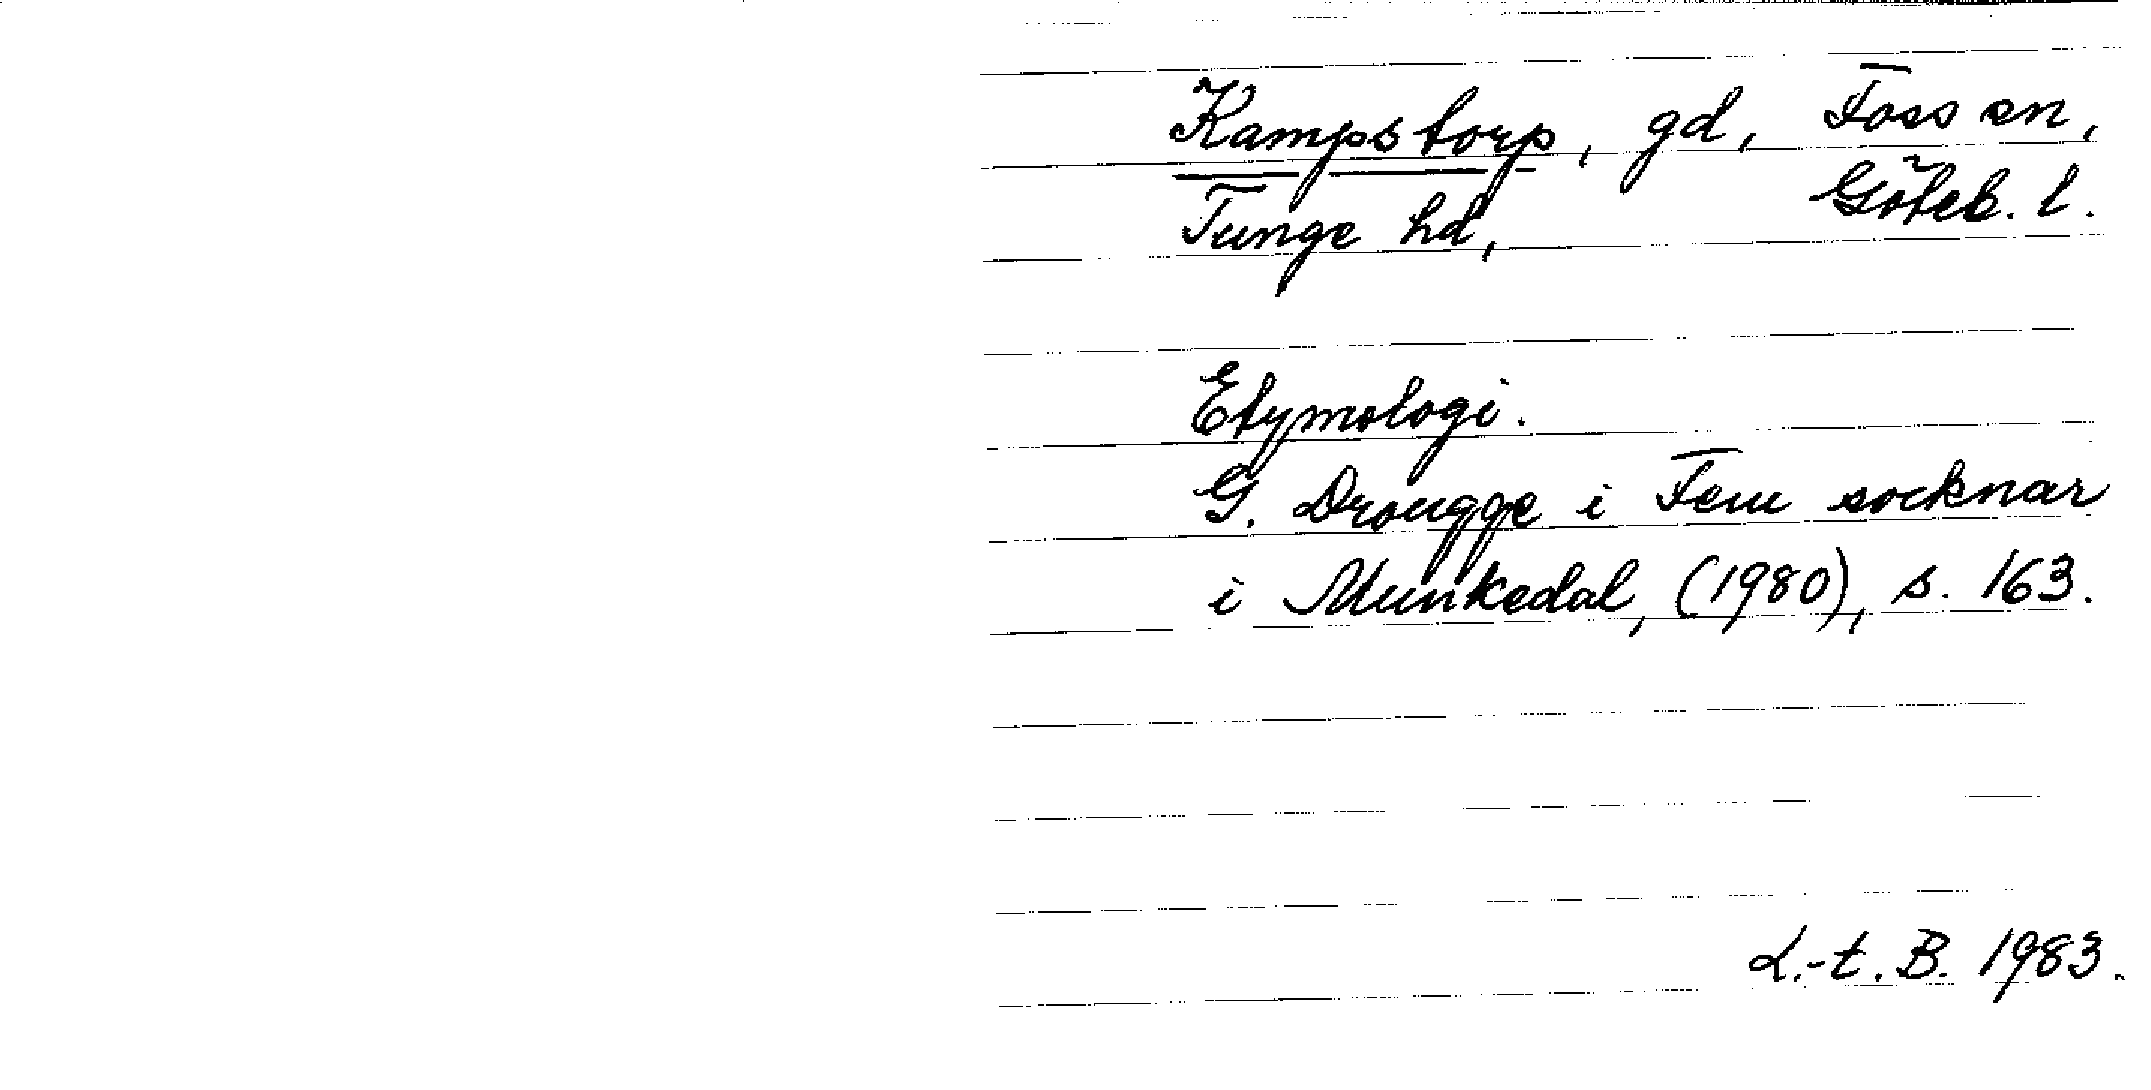 Kampstorp, gd, Foss sn,
Tunge hd, Göteb. l.
Etymologi.
G. Drougge i Fem socknar
i Munkedal, (1980), s. 163.
L.-t. B. 1983.